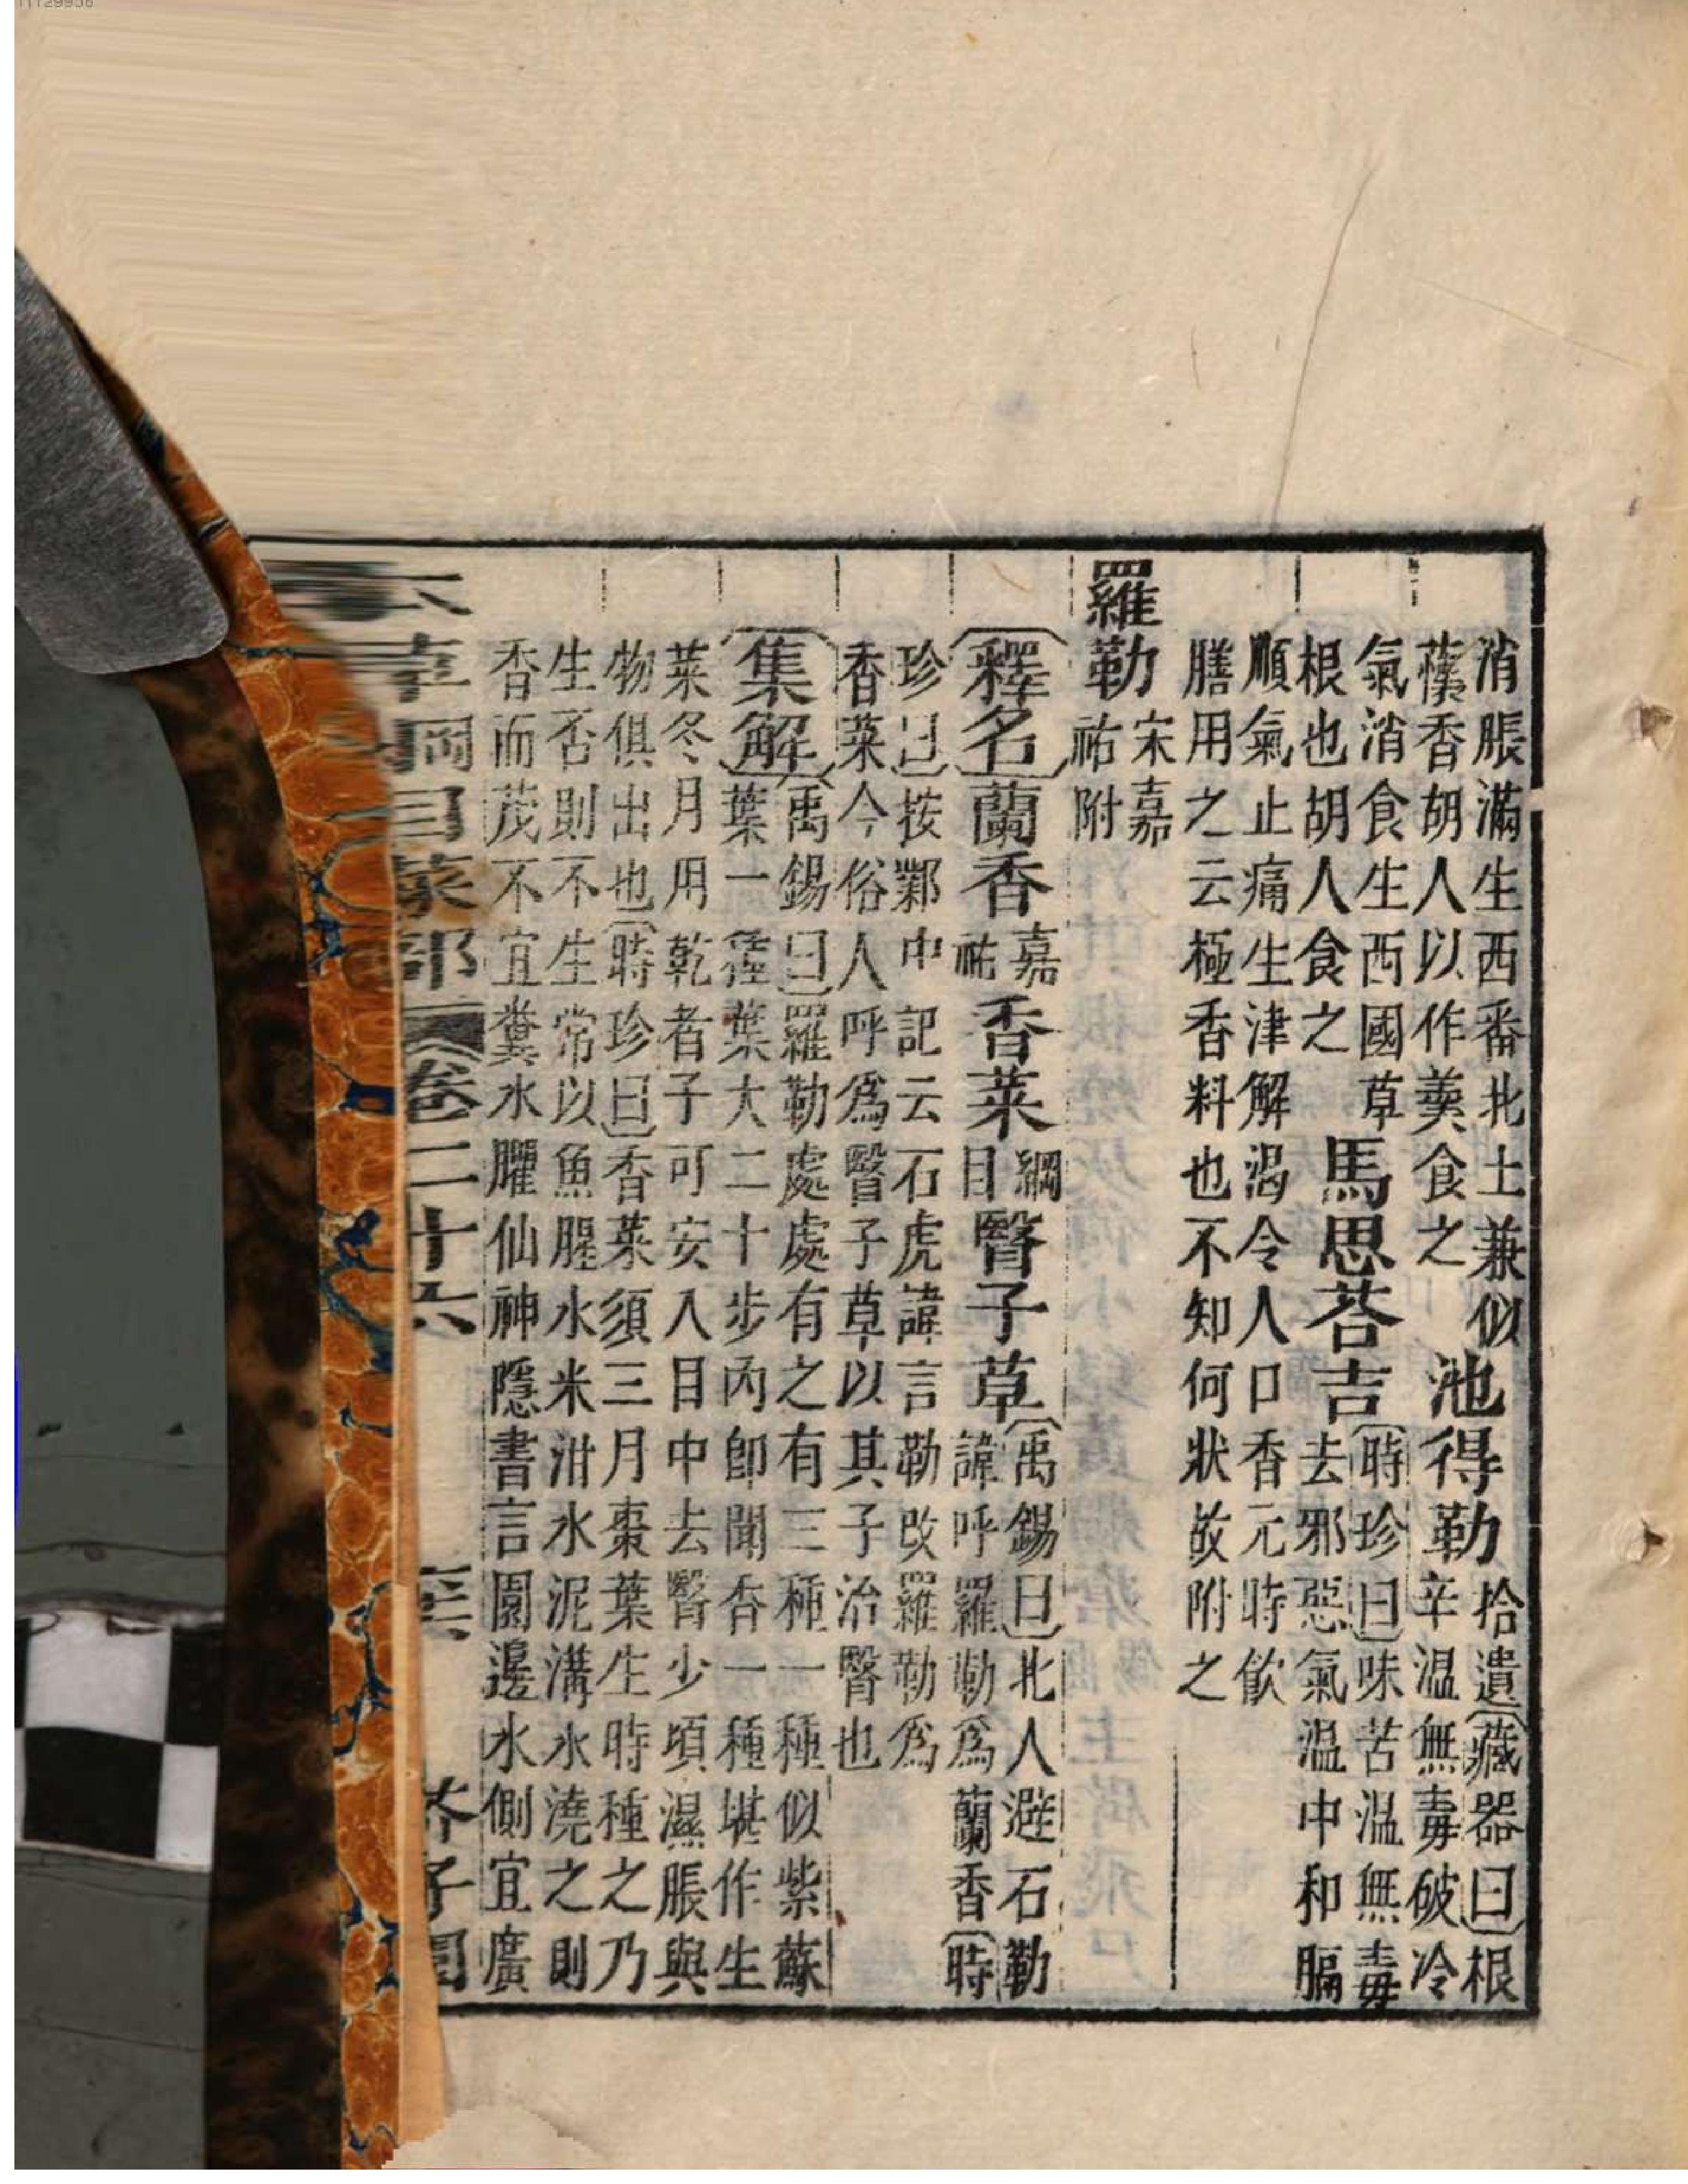 消脹滿生西番北土兼似
蘹香胡人以作羹食之
池得勒
拾遺〔藏器曰〕根
辛温無毒破冷
氣消食生西國草
根也胡人食之
馬思荅吉
〔時珍曰〕味苦温無毒
去邪惡氣温中和膈
順氣止痛生津解渴令人口香元時飲
膳用之云極香料也不知何狀故附之
羅勒
宋嘉
祐附
〔釋名〕蘭香
嘉
祐
香菜
綱
目
翳子草
〔禹錫曰〕北人避石勒
諱呼羅勒爲蘭香〔時
珍曰〕按鄴中記云石虎諱言勒改羅勒爲
香菜今俗人呼爲翳子草以其子治翳也
〔集解〕
〔禹錫曰〕羅勒處處有之有三種一種似紫蘇
葉一種葉大二十步內卽聞香一種堪作生
菜冬月用乾者子可安入目中去翳少頃濕脹與
物俱出也〔時珍曰〕香菜須三月棗葉生時種之乃
生否則不生常以魚腥水米泔水泥溝水澆之則
香而茂不宜糞水臞仙神隱書言園邊水側宜廣
草綱目菜部
卷二十六
芥子園